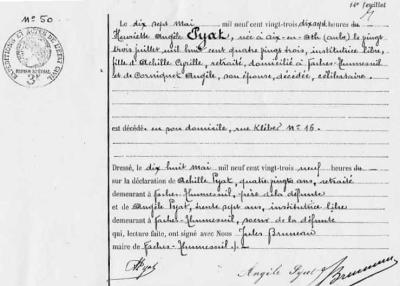 14e feuillet
No 50
EXPÉDITIONS ET ACTES DE L'ÉTAT CIVIL
3F
Le dix sept mai mil neuf cent vingt-trois dix sept heures du
Henriette Angèle Pyat, née à Aix-en-Oth (aube) le vingt
trois juillet mil huit cent quatre vingt trois, institutrice libre,
fille d'Achille Cyrille, retraité, domicilié à Faches-Thumesnil
et de Angèle, son épouse, décédée, célibataire.
est décédée en son domicile, rue Kléber No 16.
Dressé, le dix huit mai mil neuf cent vingt-trois neuf heures du
sur la déclaration de Achille Pyat, quatre vingts ans, retraité
demeurant à Faches-Thumesnil, père de la défunte
et de Angèle Pyat, trente sept ans, institutrice libre
demeurant à Faches-Thumesnil, soeur de la défunte
qui, lecture faite, ont signé avec Nous Jules Bruneau
maire de Faches-Thumesnil ./.
APyat
Angèle Pyat
Bruneau